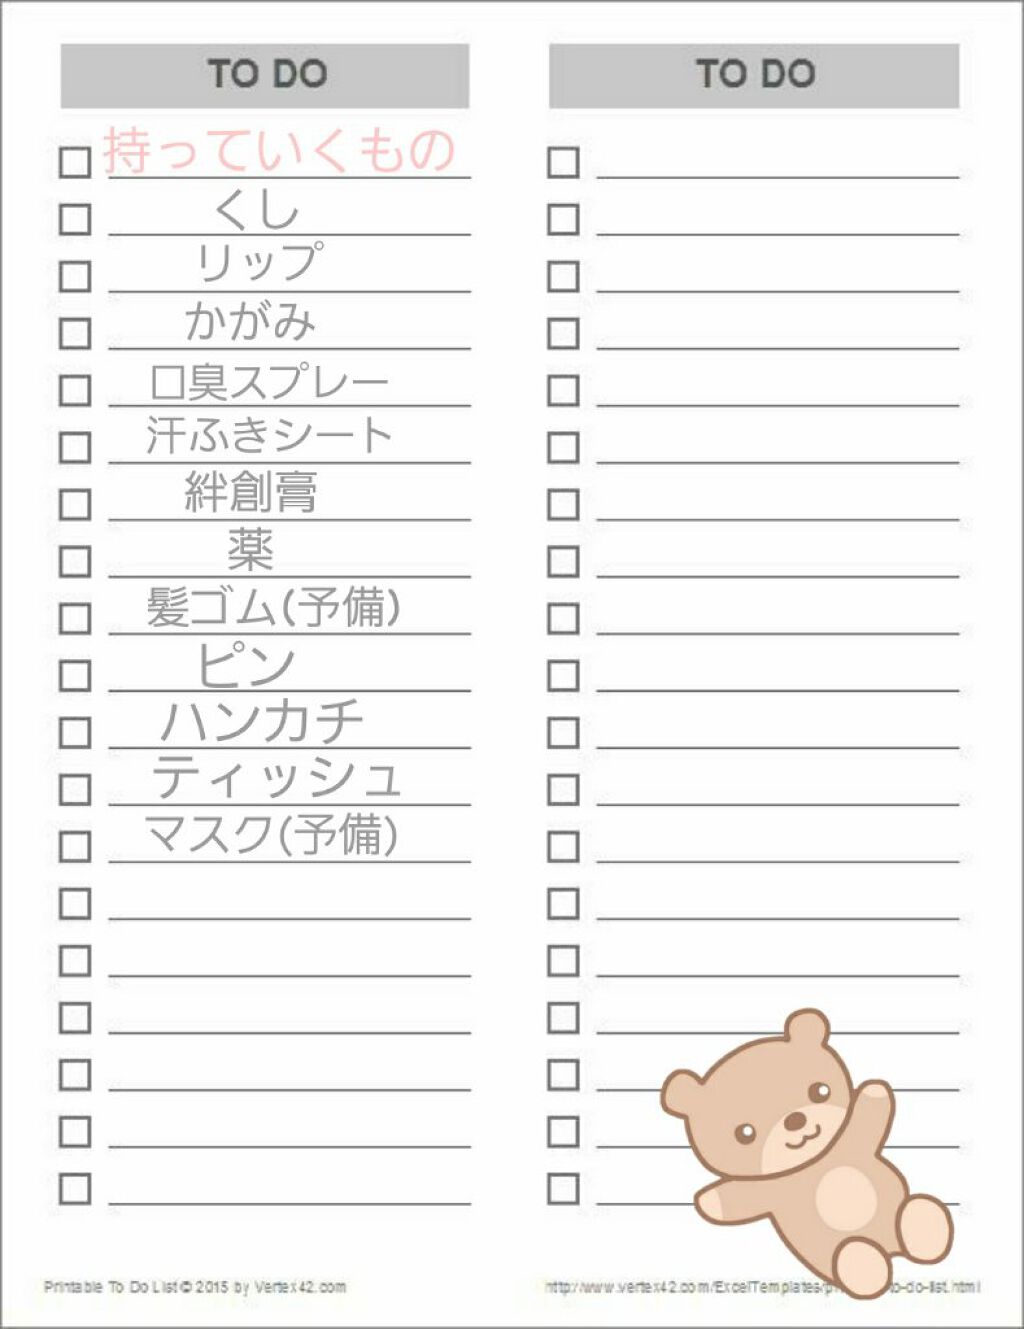 TO DO
持っていくもの
くし
リップ
かがみ
口臭スプレー
汗ふきシート
絆創膏
薬
髪ゴム(予備)
ピン
ハンカチ
ティッシュ
マスク(予備)
TO DO
Printable To Do List © 2015 by Vertex42.com
http://www.vertex42.com/ExcelTemplates/p to-do-list.html